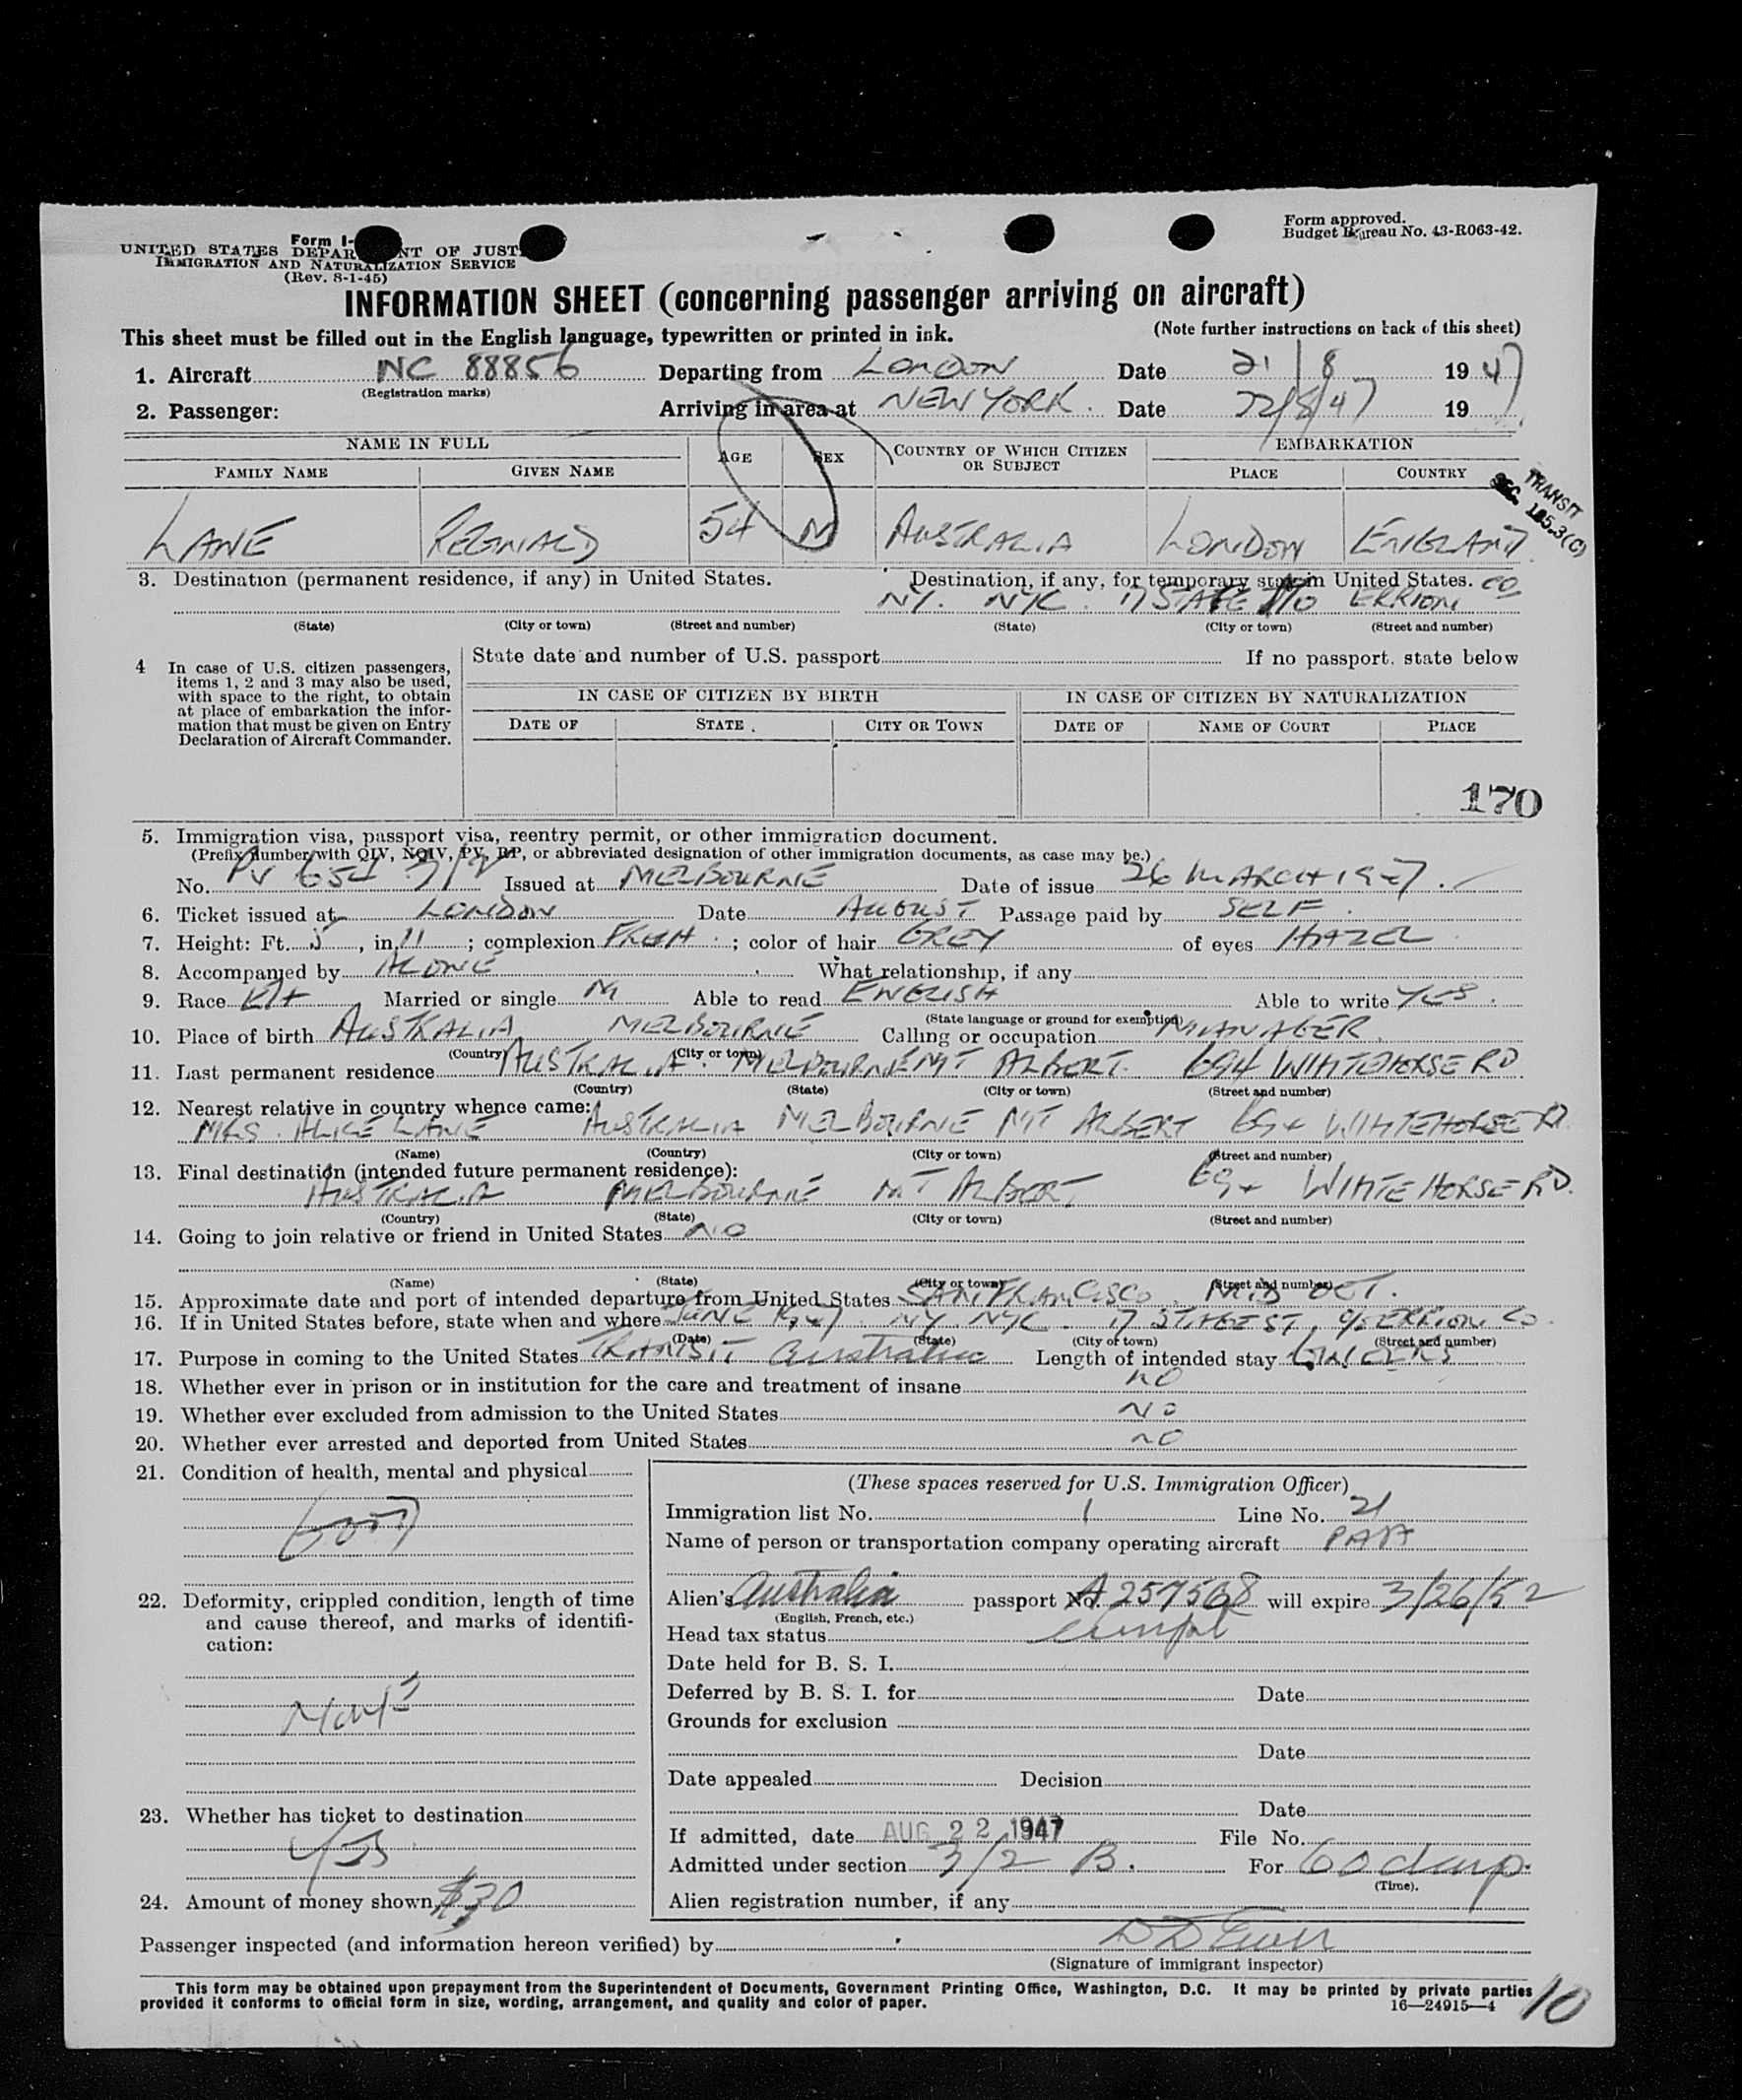 Form I-
UNITED STATES DEPAR NT OF JUST
IMMIGRATION AND NATURALIZATION SERVICE
(Rev. 8-1-45)
Form approved.
Budget Bureau No. 43-R063-42.
INFORMATION SHEET (concerning passenger arriving on aircraft)
This sheet must be filled out in the English language, typewritten or printed in ink. (Note further instructions on back of this sheet)
1. Aircraft NC 88856 Departing from LONDON Date 21/8 1947
(Registration marks)
2. Passenger: Arriving in area at NEW YORK. Date 22/8/47 19
NAME IN FULL AGE SEX COUNTRY OF WHICH CITIZEN OR SUBJECT EMBARKATION
FAMILY NAME GIVEN NAME PLACE COUNTRY
TRANSIT
SEC. 125.3(C)
LANE REGINALD 54 M AUSTRALIA LONDON ENGLAND
3. Destination (permanent residence, if any) in United States. Destination, if any, for temporary stay in United States.
NY. NYC. 17 STATE ERRION CO
(State) (City or town) (Street and number) (State) (City or town) (Street and number)
4 In case of U.S. citizen passengers, items 1, 2 and 3 may also be used, with space to the right, to obtain at place of embarkation the information that must be given on Entry Declaration of Aircraft Commander.
State date and number of U.S. passport If no passport. state below
IN CASE OF CITIZEN BY BIRTH IN CASE OF CITIZEN BY NATURALIZATION
DATE OF STATE CITY OR TOWN DATE OF NAME OF COURT PLACE
170
5. Immigration visa, passport visa, reentry permit, or other immigration document.
(Prefix number with QIV, NQIV, PV, RP, or abbreviated designation of other immigration documents, as case may be.)
No. PV 654 3/2 Issued at MELBOURNE Date of issue 26 MARCH 1947.
6. Ticket issued at LONDON Date AUGUST Passage paid by SELF.
7. Height: Ft. 5, in. 11; complexion FRESH; color of hair GREY of eyes HAZEL
8. Accompanied by ALONE What relationship, if any
9. Race Married or single M Able to read ENGLISH Able to write YES.
(State language or ground for exemption)
10. Place of birth AUSTRALIA MELBOURNE Calling or occupation MANAGER
(Country) (City or town)
11. Last permanent residence AUSTRALIA. MELBOURNE MT ALBERT. 694 WHITEHORSE RD
(Country) (State) (City or town) (Street and number)
12. Nearest relative in country whence came:
MRS. ALICE LANE AUSTRALIA MELBOURNE MT ALBERT 694 WHITEHORSE RD
(Name) (Country) (City or town) (Street and number)
13. Final destination (intended future permanent residence):
AUSTRALIA MELBOURNE MT ALBERT 694 WHITEHORSE RD.
(Country) (State) (City or town) (Street and number)
14. Going to join relative or friend in United States NO
(Name) (State) (City or town) (Street and number)
15. Approximate date and port of intended departure from United States SAN FRANCISCO. MID OCT.
16. If in United States before, state when and where JUNE 1947. NY NYC. 17 STATE ST, c/o ERRION CO.
(Date) (State) (City of town) (Street and number)
17. Purpose in coming to the United States TRANSIT Australia Length of intended stay 6 WEEKS
18. Whether ever in prison or in institution for the care and treatment of insane NO
19. Whether ever excluded from admission to the United States NO
20. Whether ever arrested and deported from United States NO
21. Condition of health, mental and physical
GOOD
22. Deformity, crippled condition, length of time and cause thereof, and marks of identification:
NONE
23. Whether has ticket to destination
YES
24. Amount of money shown $30
(These spaces reserved for U.S. Immigration Officer)
Immigration list No. 1 Line No. 21
Name of person or transportation company operating aircraft PAA
Alien's Australia passport No. A 257568 will expire 3/26/52
(English, French, etc.)
Head tax status exempt
Date held for B. S. I.
Deferred by B. S. I. for Date
Grounds for exclusion
Date
Date appealed Decision
Date
If admitted, date AUG 22 1947 File No.
Admitted under section 3/2 B. For 60 days
(Time).
Alien registration number, if any
Passenger inspected (and information hereon verified) by
(Signature of immigrant inspector)
This form may be obtained upon prepayment from the Superintendent of Documents, Government Printing Office, Washington, D.C. It may be printed by private parties
provided it conforms to official form in size, wording, arrangement, and quality and color of paper. 16—24915—4
10